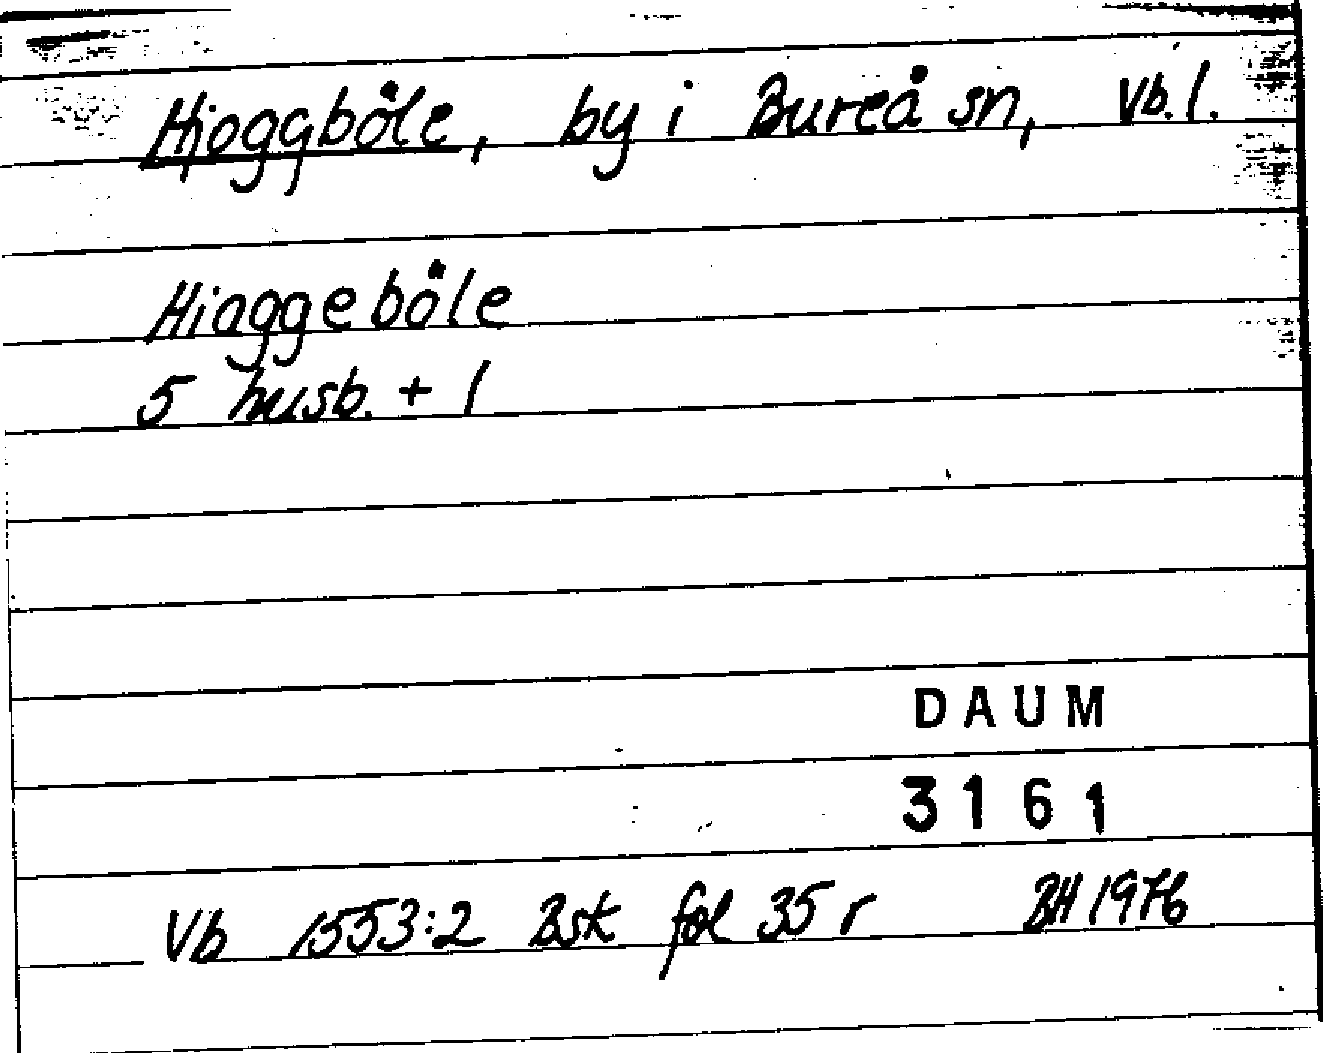 Hjoggböle, by i Bureå sn, Vb. l.
Hioggeböle
5 husb. + 1
DAUM
3161
Vb 1553:2 Bsk fol 35 r BH 1976